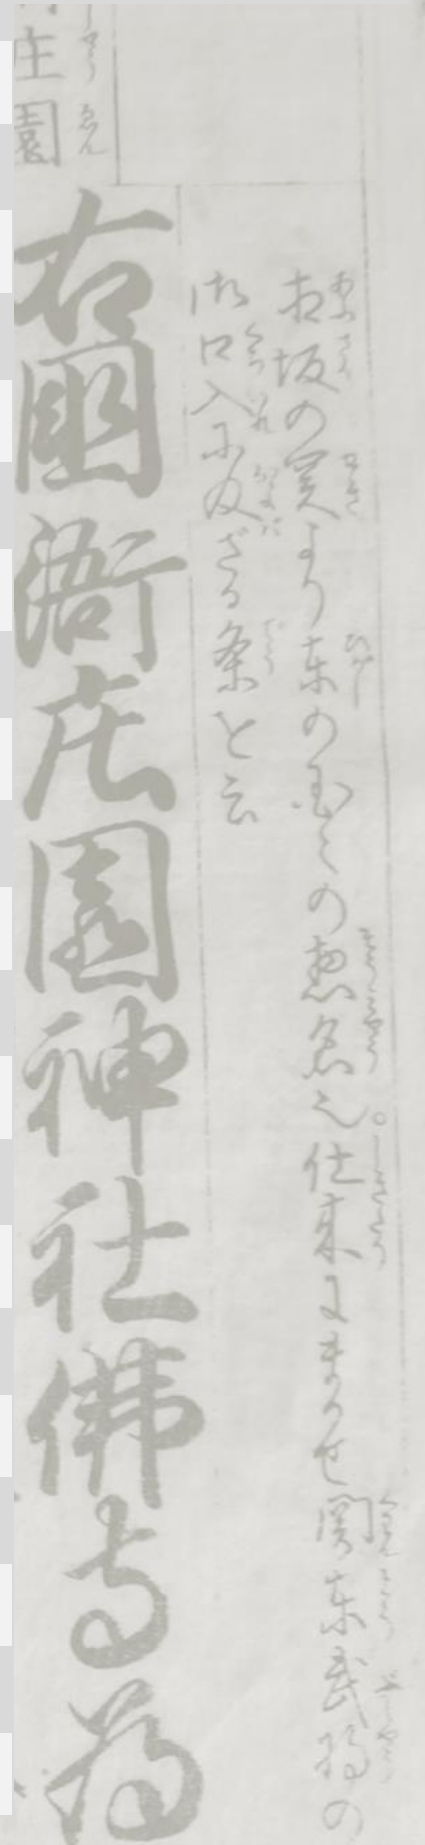 相坂の関より東の国々の惣名也。仕来にまかせ関東武将の
御口入に及ざる条と云
右國衙庄園神社佛寺為
庄園